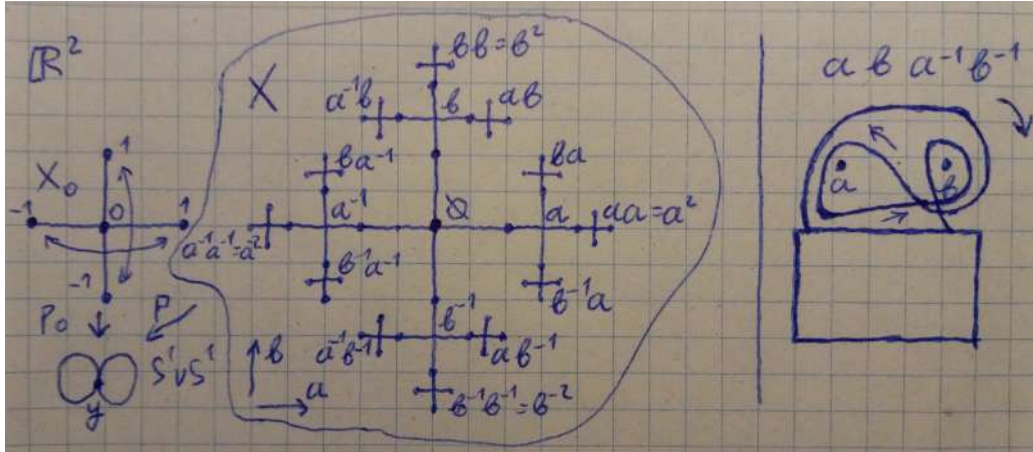 ℝ²
X₀
1
-1
0
1
-1
P₀
P
S¹∨S¹
y
X
bb=b²
a⁻¹b
b
ab
ba⁻¹
ba
a⁻¹
Ø
a
aa=a²
a⁻¹a⁻¹=a⁻²
b⁻¹a⁻¹
b⁻¹a
b⁻¹
a⁻¹b⁻¹
ab⁻¹
b
a
b⁻¹b⁻¹=b⁻²
a b a⁻¹ b⁻¹
a
b